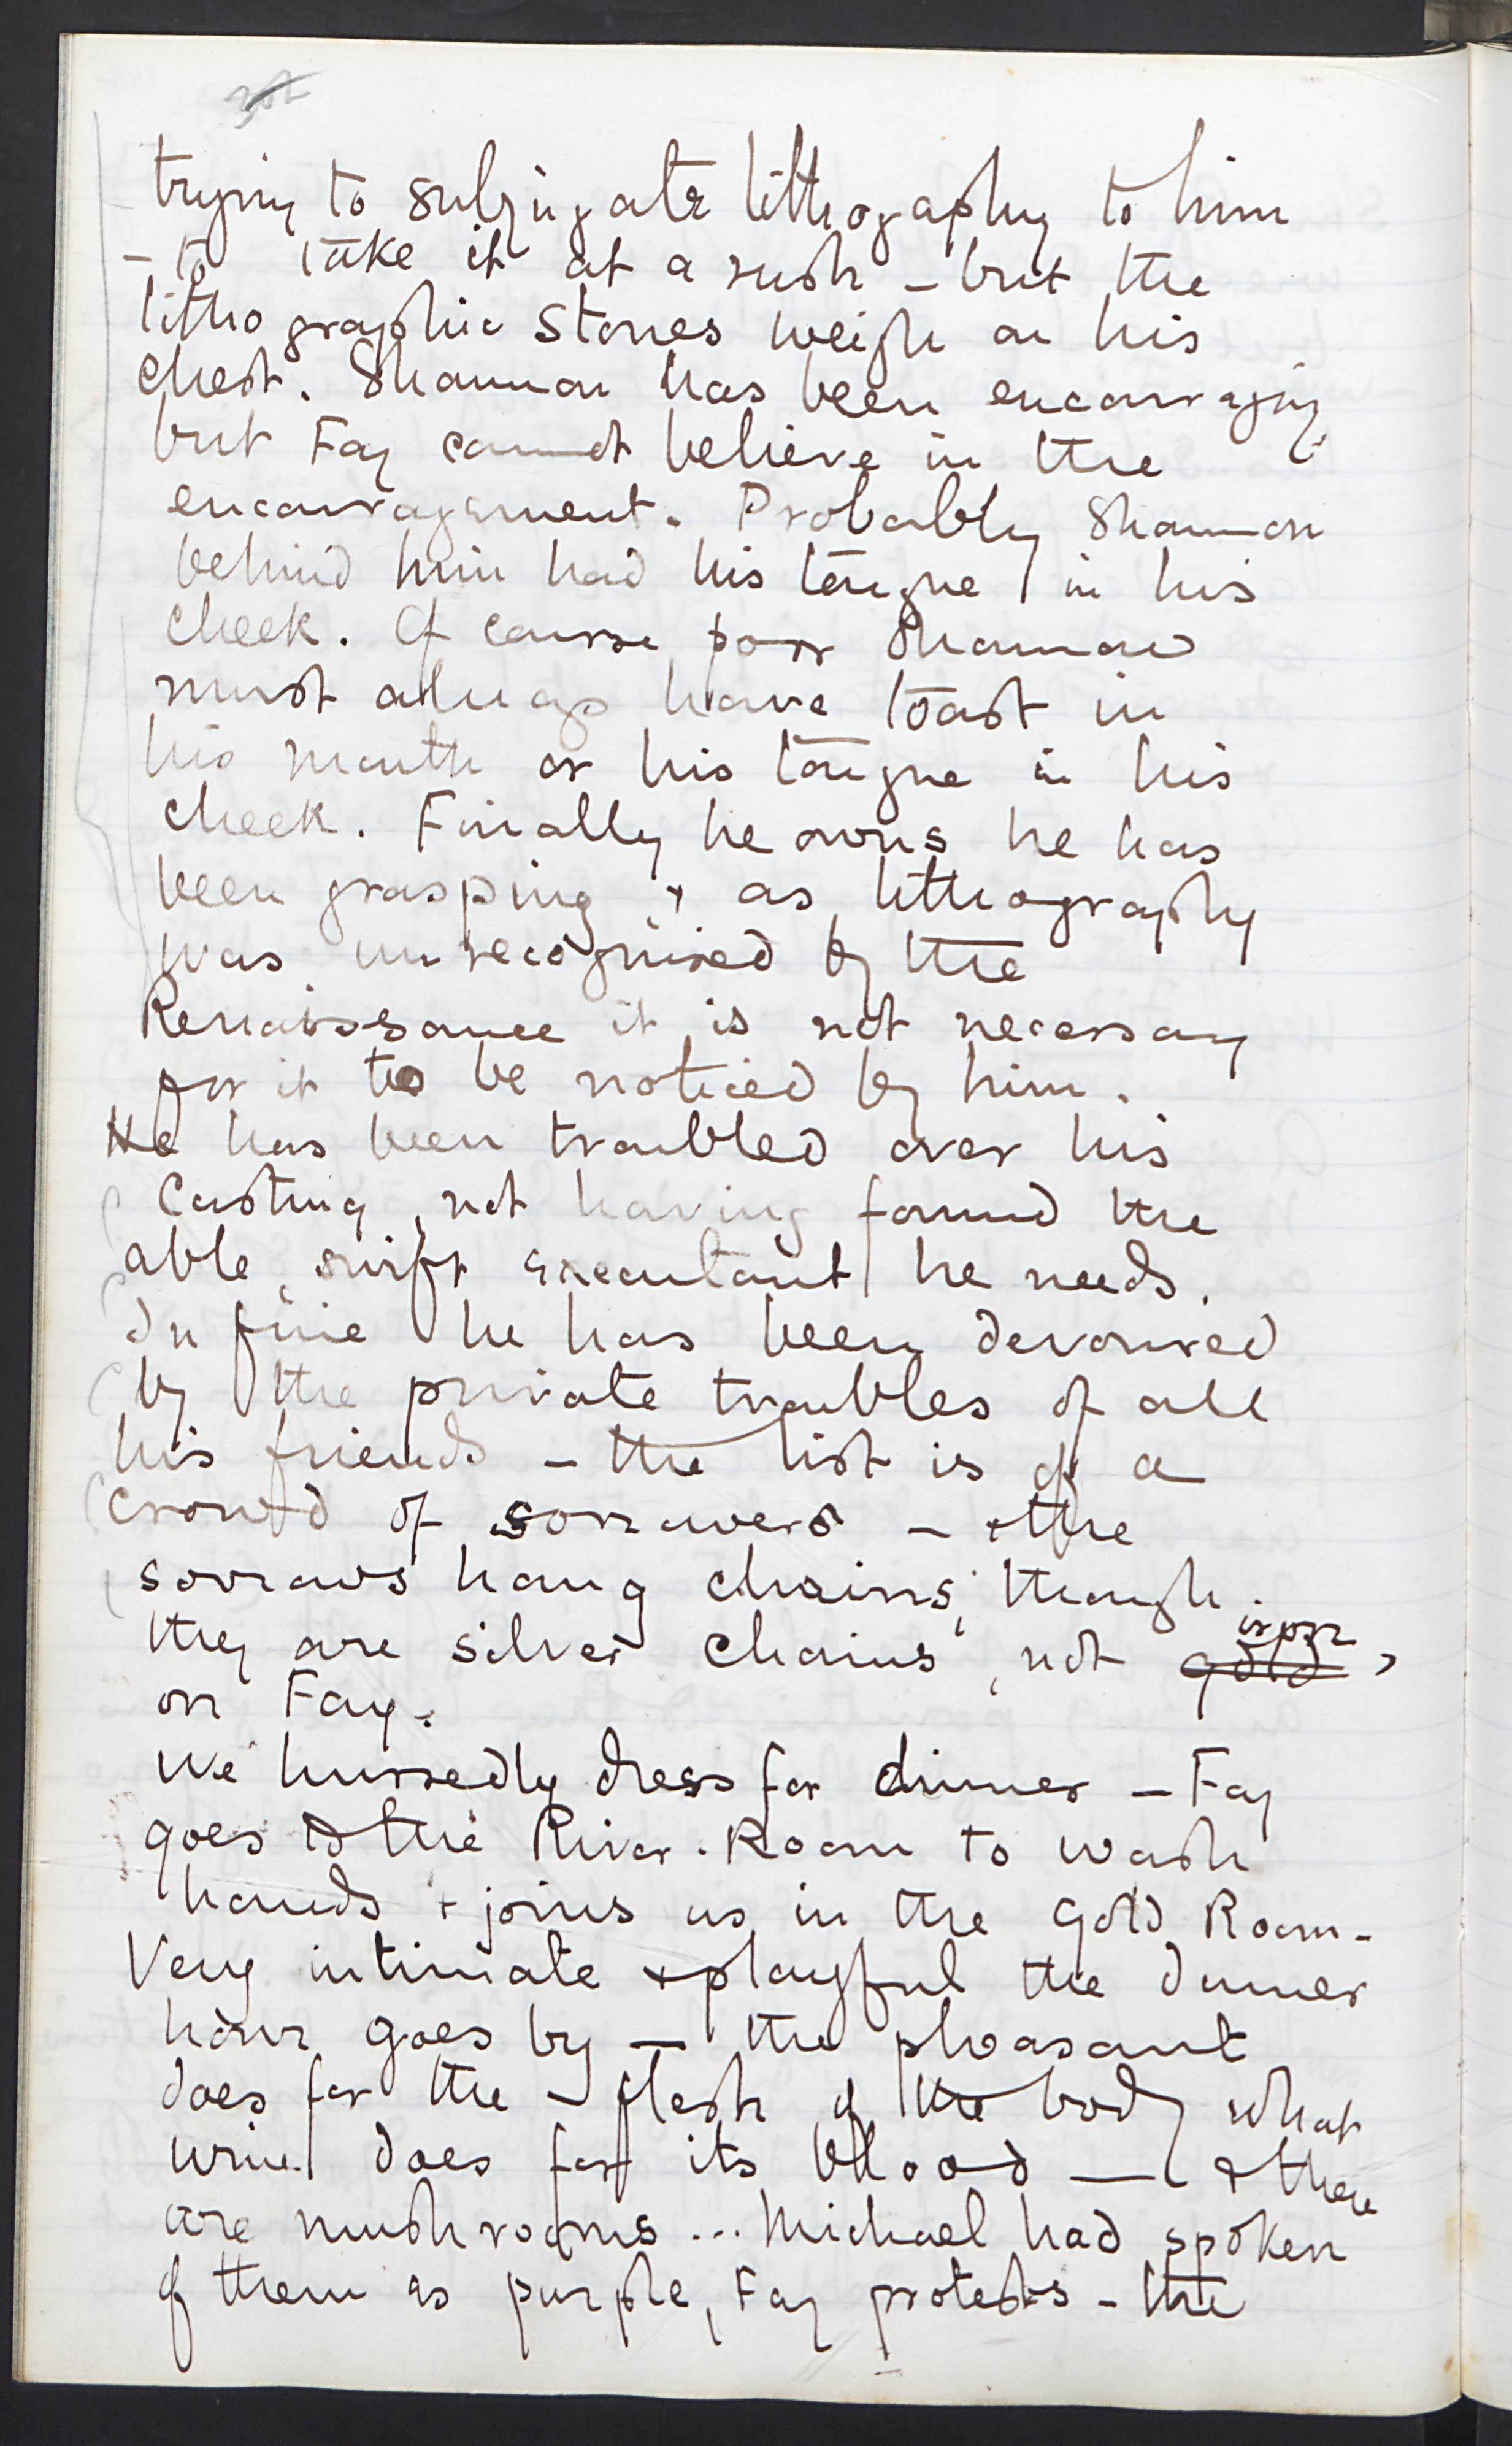 trying to subjugate lithography to him
- to take it at a rush - but the
lithographic stones weigh on his
chest. Shannon has been encouraging,
but Fay cannot believe in the
encouragement. Probably Shannon
behind him had his tongue in his
cheek. Of course poor Shannon
must always have toast in
his mouth or his tongue in his
cheek. Finally he owns he has
been grasping & as lithography
was unrecognised by the
Renaissance it is not necessary
for it to be noticed by him.
He has been troubled over his
Casting, not having found the
able, swift executant he needs.
In fine he has been devoured
by the private troubles of all
his friends - the list is of a
crowd of sorrowers - & the
sorrows hang chains, though
they are silver chains, not gold iron,
on Fay.
We hurriedly dress for dinner - Fay
goes to the River-Room to wash
hands & joins us in the Gold Room -
Very intimate & playful the dinner
hour goes by - the pheasant
does for the flesh of the body what
wine does for its blood - & there
are mushrooms ... Michael had spoken
of them as purple, Fay protests - the